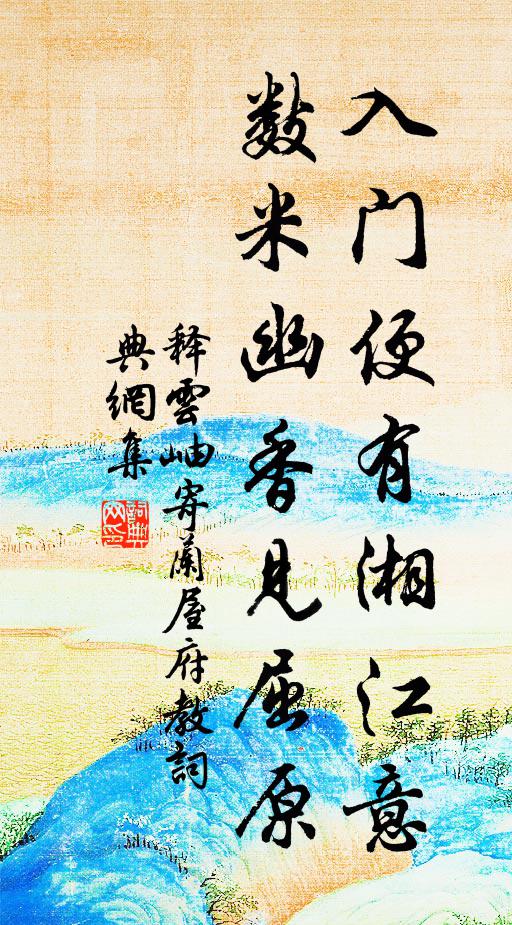 入门便有湘江意
数米幽香见屈原
释雲岫寄蘭屋府教詞
典網集
詞典网印